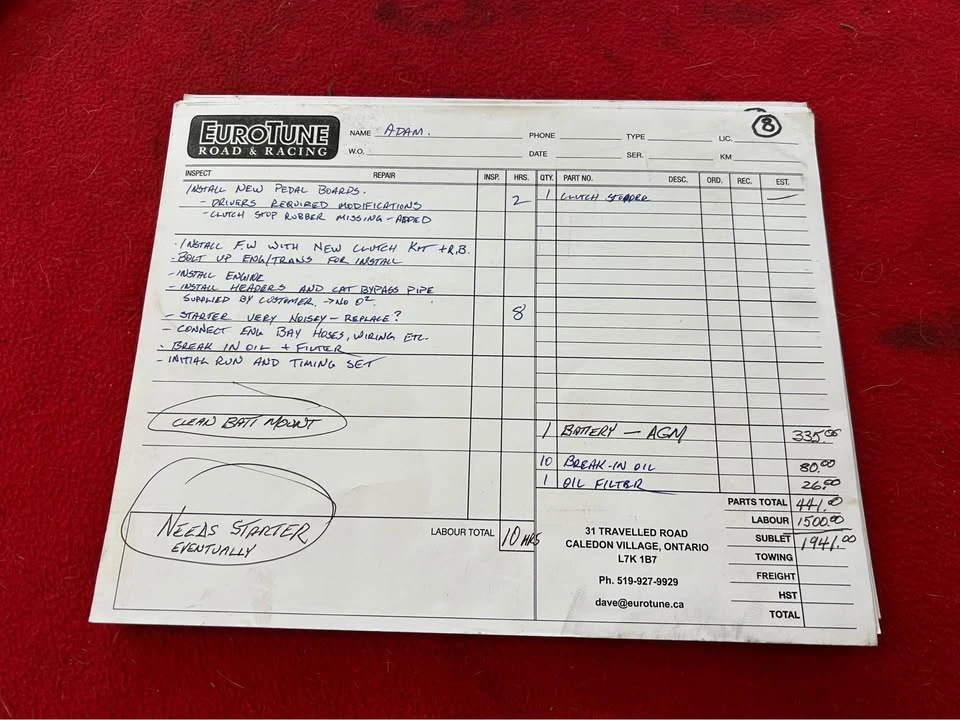 8
EUROTUNE
ROAD & RACING
NAME ADAM. PHONE TYPE LIC.
W.O. DATE SER. KM
INSPECT REPAIR INSP. HRS. QTY. PART NO. DESC. ORD. REC. EST.
INSTALL NEW PEDAL BOARDS.
- DRIVERS REQUIRED MODIFICATIONS 2
- CLUTCH STOP RUBBER MISSING - ADDED
1 CLUTCH —
- INSTALL F.W WITH NEW CLUTCH KIT + R.B.
- BOLT UP ENG/TRANS FOR INSTALL
- INSTALL ENGINE
- INSTALL HEADERS AND CAT BYPASS PIPE
SUPPLIED BY CUSTOMER. → NO O2.
- STARTER VERY NOISEY - REPLACE? 8
- CONNECT ENG BAY HOSES, WIRING ETC.
- BREAK IN OIL + FILTER
- INITIAL RUN AND TIMING SET
CLEAN BATT MOUNT
NEEDS STARTER
EVENTUALLY
LABOUR TOTAL 10 HRS
1 BATTERY — AGM
10 BREAK-IN OIL 80.00
1 OIL FILTER 26.00
PARTS TOTAL 441.00
LABOUR 1500.00
SUBLET 1941.00
TOWING
FREIGHT
HST
TOTAL
31 TRAVELLED ROAD
CALEDON VILLAGE, ONTARIO
L7K 1B7
Ph. 519-927-9929
dave@eurotune.ca